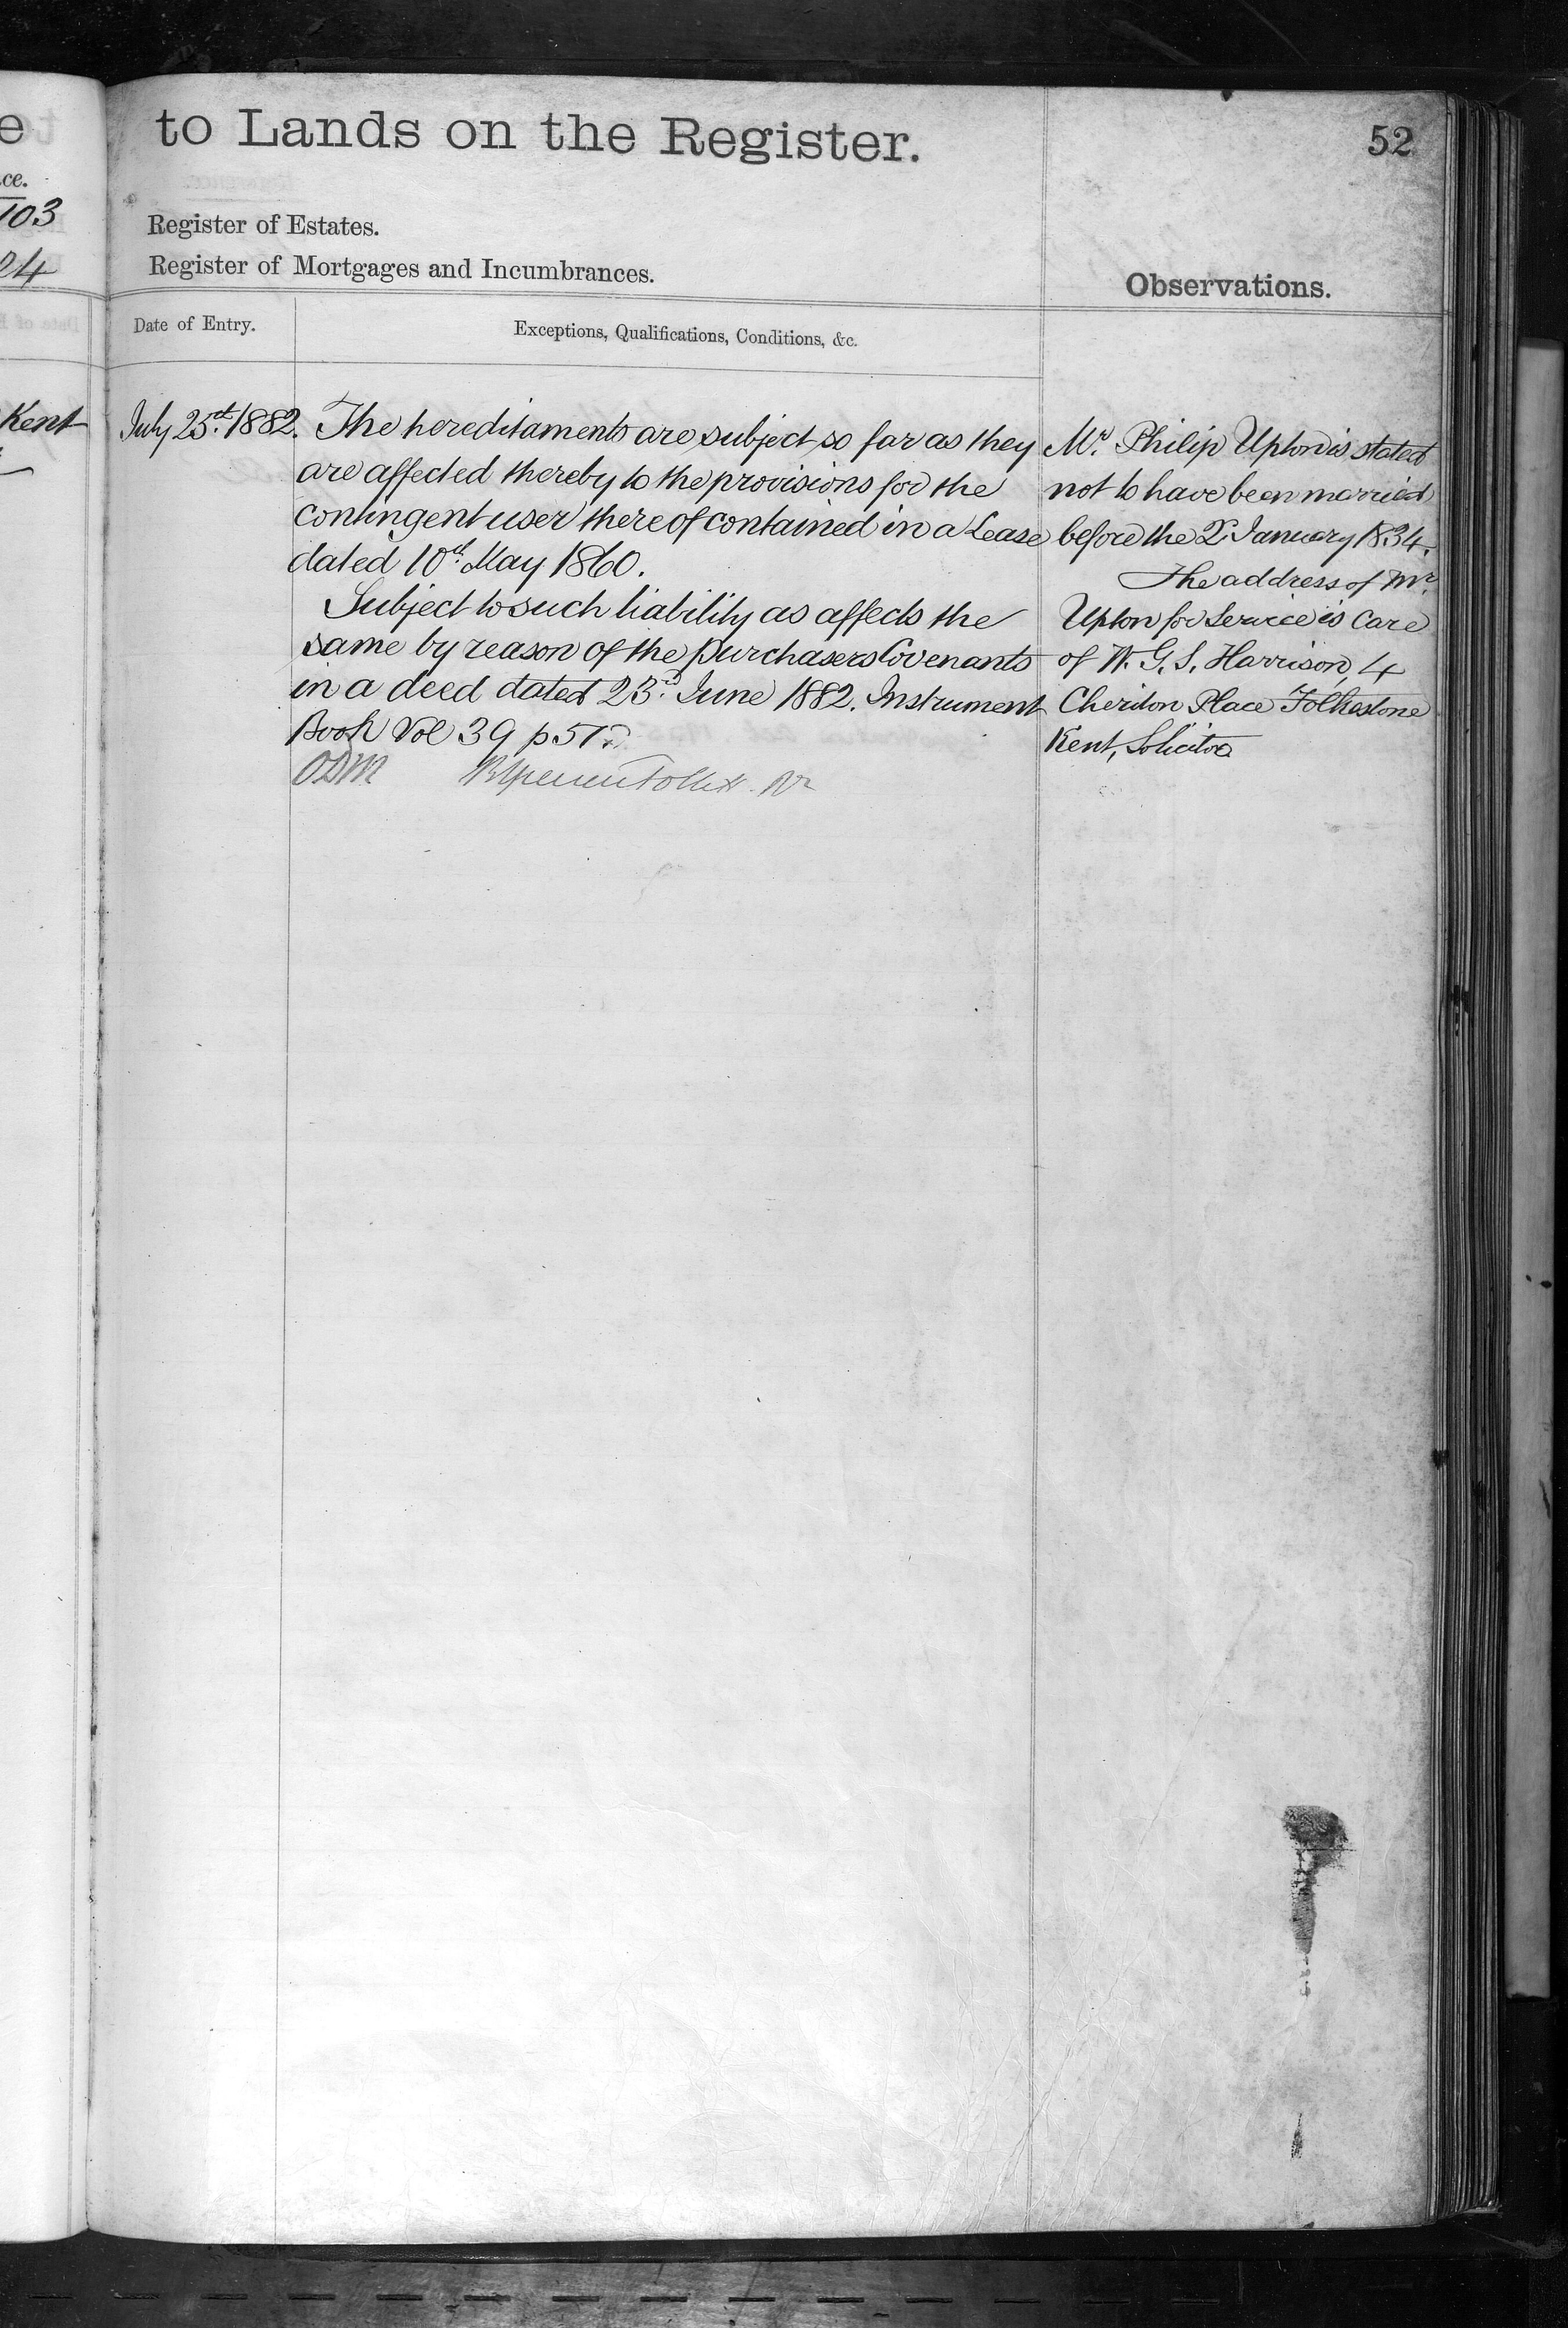 e
ce.
103
24
Kent
to Lands on the Register.
52
Register of Estates.
Register of Mortgages and Incumbrances.
Observations.
Date of Entry.
Exceptions, Qualifications, Conditions, &c.
July 25th. 1882.
The hereditaments are subject so far as they
are affected thereby to the provisions for the
contingent user thereof contained in a Lease
dated 10th. May 1860.
Subject to such liability as affects the
same by reason of the purchasers Covenants
in a deed dated 23rd. June 1882. Instrument
Book Vol 39 p 57
ODM
Mr. Philip Upton is stated
not to have been married
before the 2 January 1834.
The address of Mr.
Upton for Service is Care
of W. G. S. Harrison, 4
Cheriton Place Folkestone
Kent, Solicitor